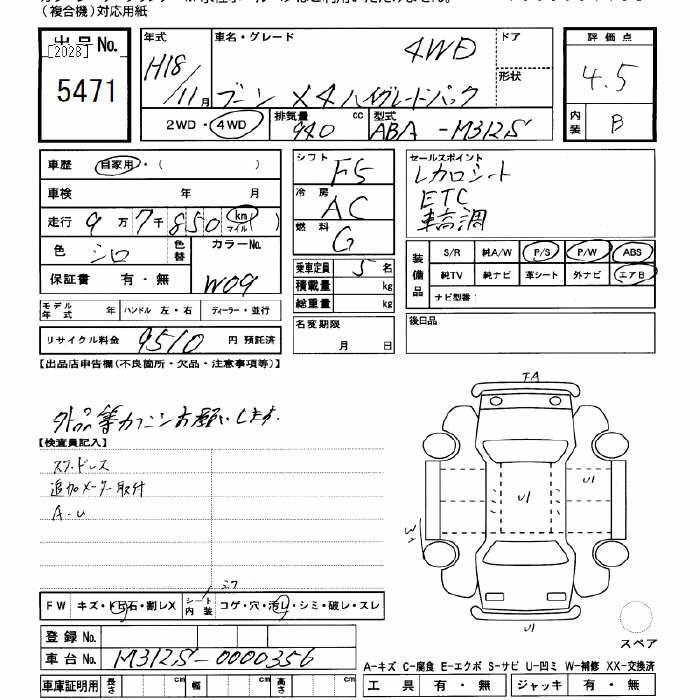 （複合機）対応用紙
出品No.
[2028]
5471
年式
H18/11月
車名・グレード
4WD
ブーン X4 ハイグレードパック
ドア
形状
2WD・4WD
排気量
940
cc
型式
ABA-M312S
評価点
4.5
内装
B
車歴 自家用・（ ）
車検 年 月
走行 9万7千850 km マイル （ ）
色 シロ
色替
カラーNo.
W09
保証書 有・無
モデル年式 年 ハンドル 左・右 ディーラー・並行
リサイクル料金 9510 円 預託済
シフト F5
冷房 AC
燃料 G
乗車定員 5 名
積載量 kg
総重量 kg
名変期限
月 日
セールスポイント
レカロシート
ETC
車高調
装備品
S/R 純A/W P/S P/W ABS
純TV 純ナビ 革シート 外ナビ エアB
ナビ型番：
後日品
【出品店申告欄（不良箇所・欠品・注意事項等）】
外品等カクニンお願いします。
【検査員記入】
スタッドレス
追加メーター取付
A-U
FW キズ・トビ石・割レX
シート内装 コゲ・穴・汚レ・シミ・破レ・スレ
登録No.
車台No. M312S-0000356
車庫証明用 長さ cm 幅 cm 高さ cm
FA
U1
U1
W2
U1
スペア
A-キズ C-腐食 E-エクボ S-サビ U-凹ミ W-補修 XX-交換済
工具 有・無 ジャッキ 有・無